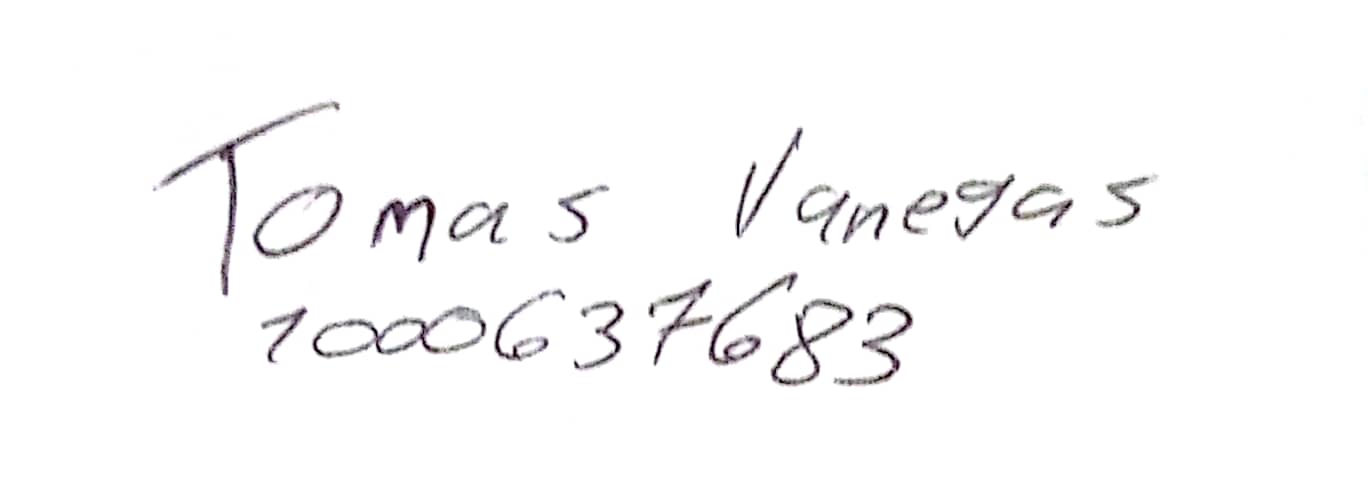 Tomas Vanegas
1000637683